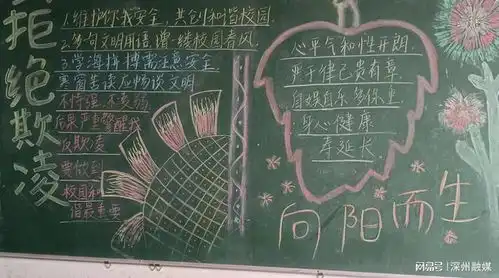 拒绝欺凌
1.维护你我安全，共创和谐校园
2.多句文明用语 增一缕校园春风
3.学海拼搏需注意安全
寒窗苦读应畅谈文明
不恃强 不
后果严重警醒我
反欺凌
要做到
校园和
谐最重要
心平气和性开朗
严于律己贵有章
自娱自乐
身心健康
寿延长
向阳而生
网易号 | 深州融媒